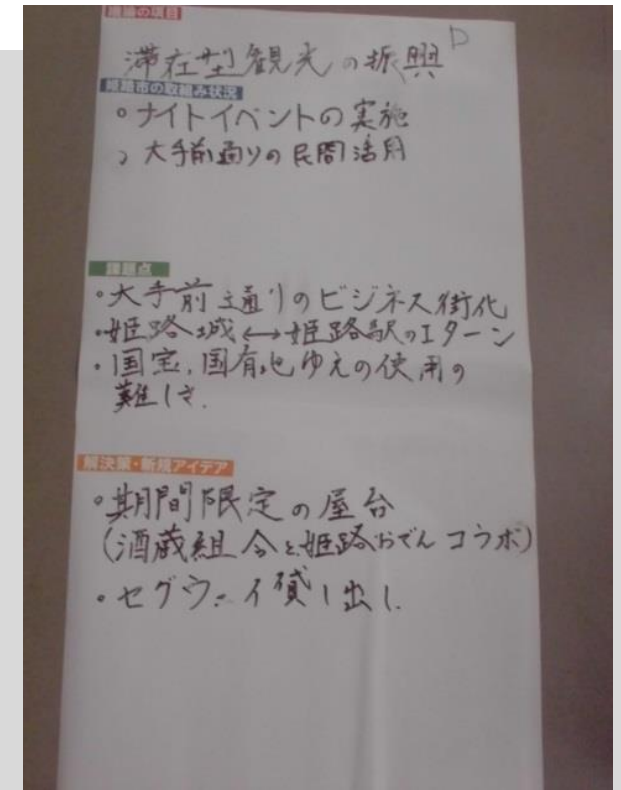 議論の項目
D
滞在型観光の振興
姫路市の取組み状況
・ナイトイベントの実施
・大手前通りの民間活用
課題点
・大手前通りのビジネス街化
・姫路城⟷姫路駅のIターン
・国宝、国有地ゆえの使用の
難しさ.
解決策・新規アイデア
・期間限定の屋台
(酒蔵組合と姫路おでんコラボ)
・セグウェイ貸し出し.